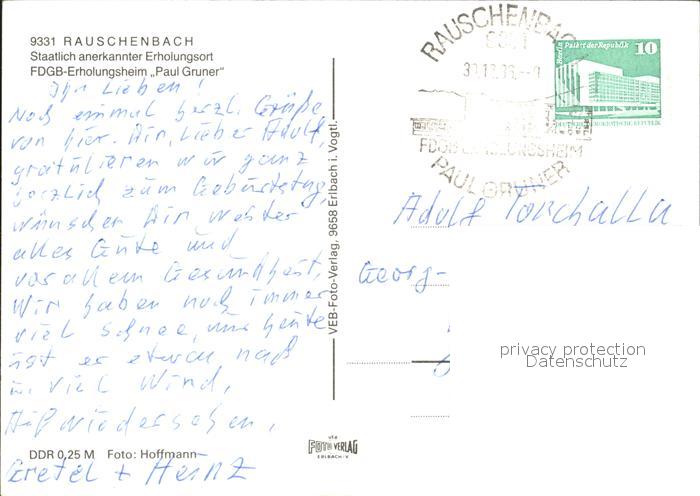 9331 RAUSCHENBACH
Staatlich anerkannter Erholungsort
FDGB-Erholungsheim „Paul Gruner"
Ihr Lieben!
Noch einmal herzl. Grüße
von hier. Dir, Lieber Adolf,
gratulieren wir ganz
herzlich zum Geburtstag,
wünschen Dir weiter
alles Gute und
vor allem Gesundheit,
Wir haben noch immer
viel Schnee, nur heute
ist es etwas naß
u. viel Wind,
Auf wiedersehen,
Gretel + Heinz
DDR 0,25 M Foto: Hoffmann
VEB-Foto-Verlag, 9658 Erlbach i. Vogtl.
veb
FOTO VERLAG
ERLBACH/V
RAUSCHENBACH
9331
FDGB ERHOLUNGSHEIM
PAUL GRUNER
Berlin Palast der Republik
10
DEUTSCHE DEMOKRATISCHE REPUBLIK
Adolf
Georg-
privacy protection
Datenschutz